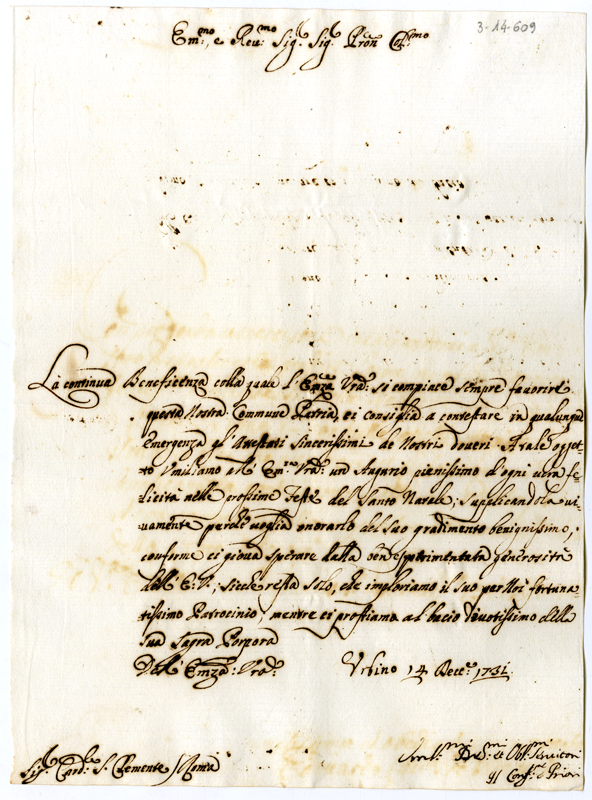 3-14-609
Em:mo, e Reu:mo Sig:r Sig:r Prōn Col:mo
La continua Beneficenza colla quale l'Emza Vrā: si compiace sempre favorire
questa Nostra Commune Patria, ci consiglia a contestare in qualunque
emergenza gl'Attestati sincerissimi de Nostri doueri. A tale oggetto
to Umiliamo all'Em:za Vrā: un Augurio pienissimo d'ogni uera fe-
licità nelle prossime Feste del Santo Natale; supplicandola ui-
uamente perche uoglia onorarlo del suo gradimento benignissimo,
conforme ci gioua sperare dalla ben esperimentata generosità
dell'E: V.; sicche resta solo, che imploriamo il suo per Noi fortuna-
tissimo Patrocinio, mentre ci prostiamo al bacio deuotissimo della
sua Sagra Porpora
Dell'Emza: Vrā: Urbino 14 Decē: 1731.
Sig:r Card:le S. Clemente / Roma
Vmil:mi Deu:mi et Obl:mi Seruitori
Gl Conf:re e Priori